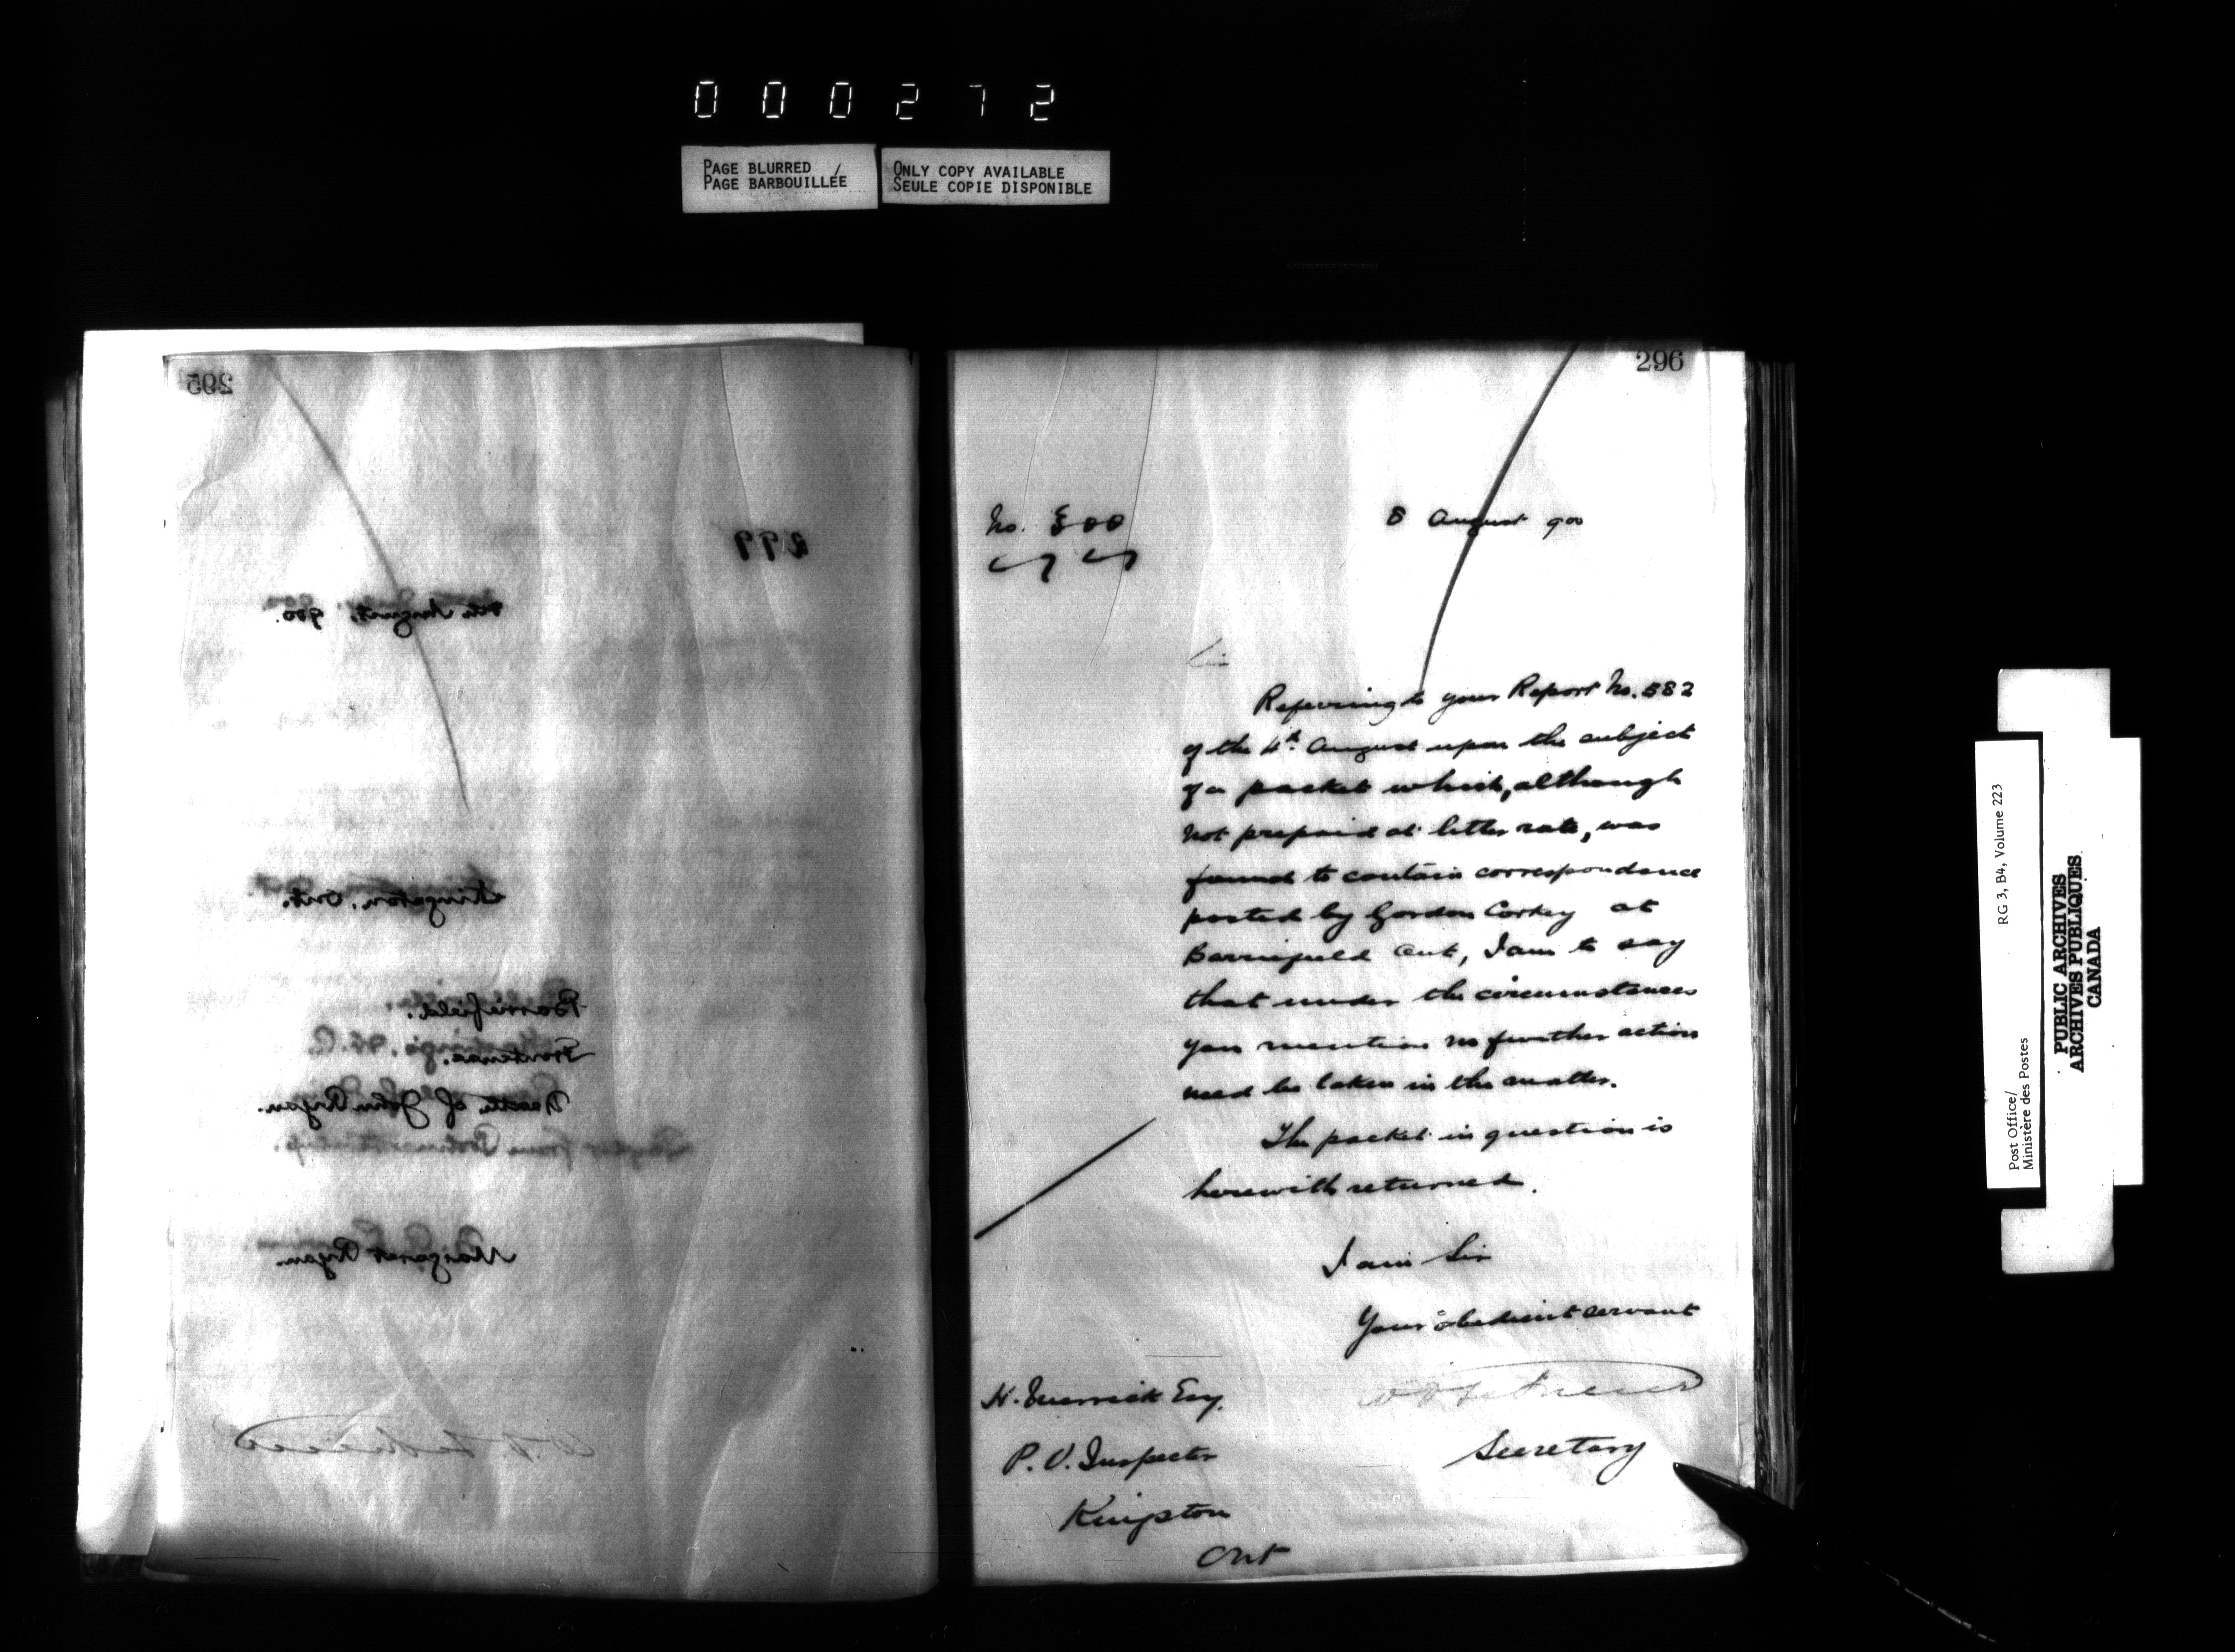 000272
PAGE BLURRED
PAGE BARBOUILLÉE
ONLY COPY AVAILABLE
SEULE COPIE DISPONIBLE
295
299
7th August, 900.
Kingston, Ont.
Barriefield.
Frontenac.
Death of John Ryan.
Margaret Ryan
296
No. 300
8 August 900
Sir
Referring to your Report No. 582
of the 4th August upon the subject
of a packet which, although
not prepaid at letter rate, was
found to contain correspondence
posted by Gordon Corkey at
Barriefield Ont, I am to say
that under the circumstances
you mention no further action
need be taken in the matter.
The packet in question is
herewith returned.
I am Sir
Your obedient servant
Secretary
H. Merrick Esq.
P. O. Inspector
Kingston
Ont
Post Office/
Ministère des Postes
RG 3, B4, Volume 223
PUBLIC ARCHIVES
ARCHIVES PUBLIQUES
CANADA